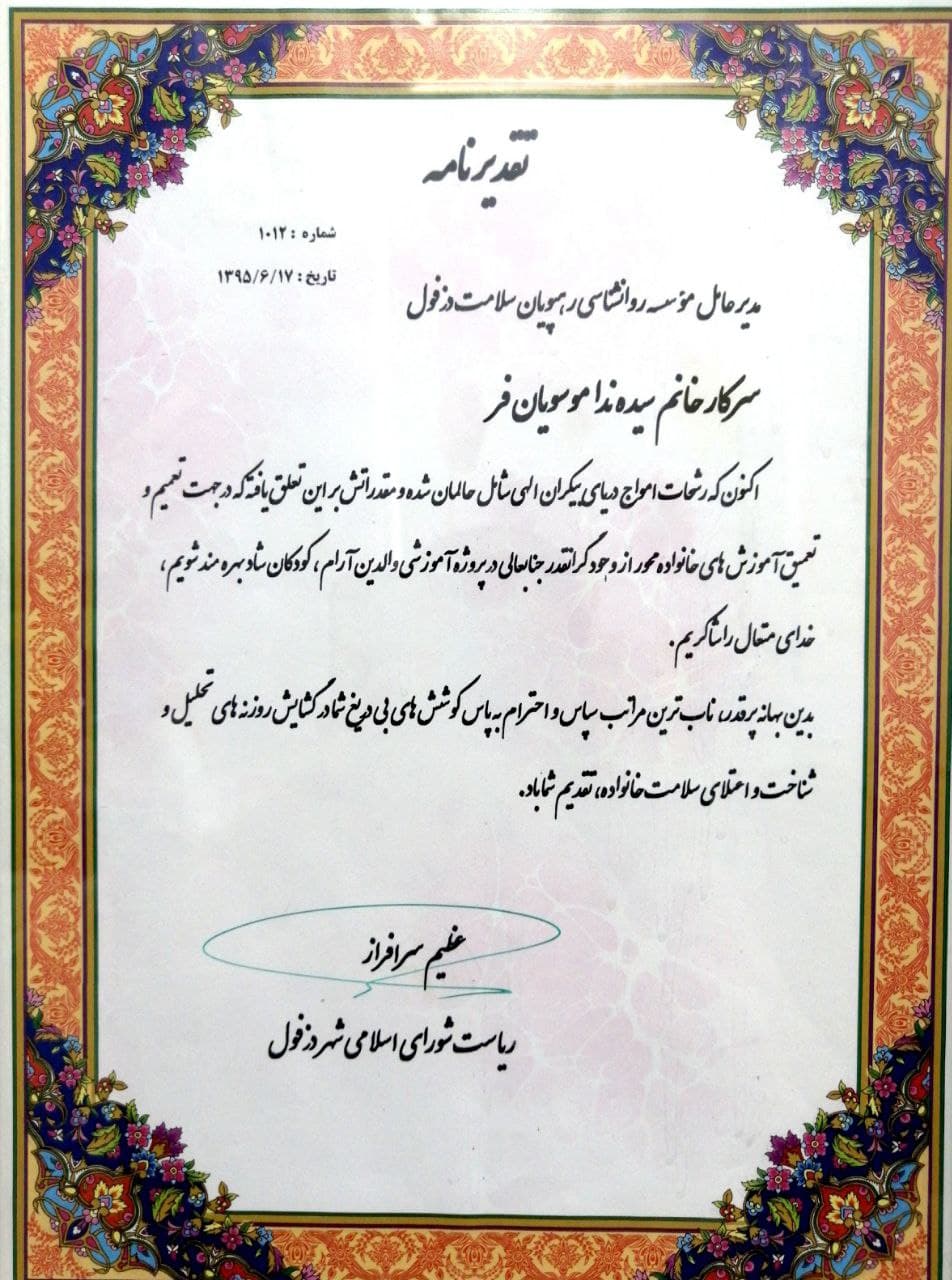 تقدیرنامه
شماره : ۱۰۱۲
تاریخ : ۱۳۹۵/۶/۱۷
مدیرعامل مؤسسه روانشناسی رهپویان سلامت دزفول
سرکار خانم سیده ندا موسویان فر
اکنون که رشحات امواج دریای بیکران الهی شامل حالمان شده و مقدراتش بر این تعلق یافته که در جهت تعمیم و
تعمیق آموزش های خانواده محور از وجود گرانقدر جنابعالی در پروژه آموزشی والدین آرام ، کودکان شاد بهره مند شویم ،
خدای متعال را شاکریم .
بدین بهانه پرقدر، ناب ترین مراتب سپاس و احترام به پاس کوشش های بی دریغ شما در گشایش روزنه های تحلیل و
شناخت و اعتلای سلامت خانواده، تقدیم شما باد.
عظیم سرافراز
ریاست شورای اسلامی شهر دزفول